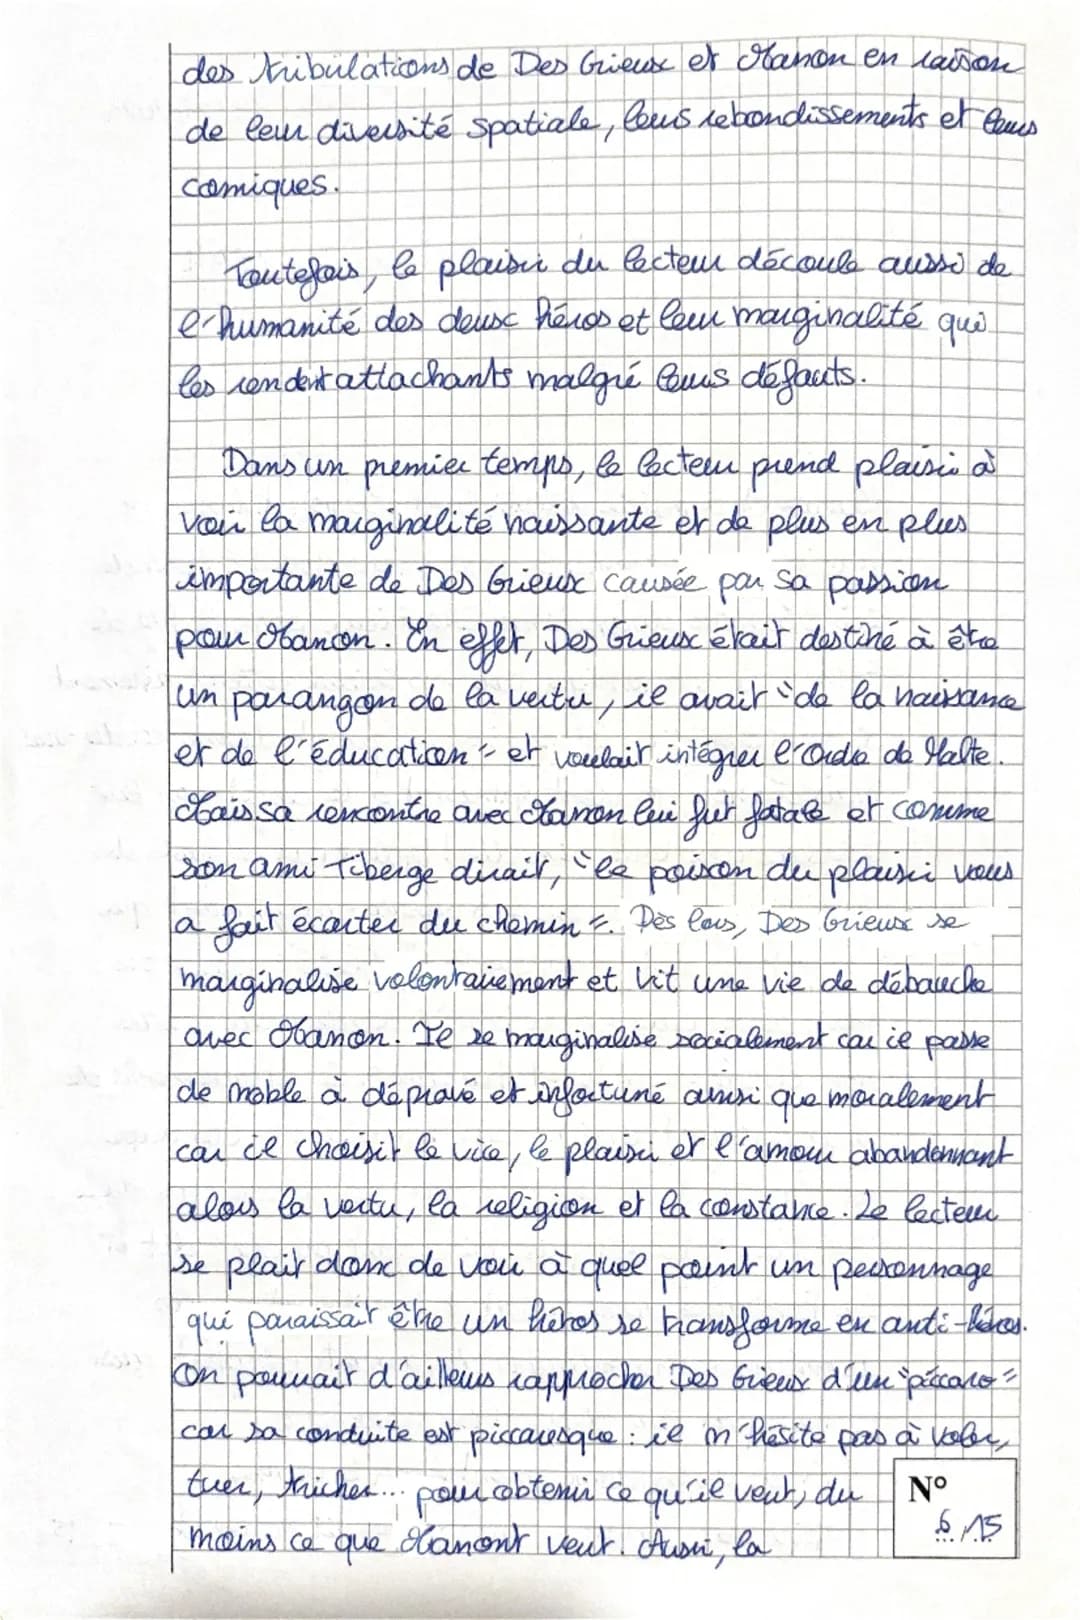 des tribulations de Des Grieux et Manon en raison
de leur diversité spatiale, leurs rebondissements et leurs
comiques.
Toutefois, le plaisir du lecteur découle aussi de
l'humanité des deux héros et leur marginalité qui
les rendent attachants malgré leurs défauts.
Dans un premier temps, le lecteur prend plaisir à
voir la marginalité naissante et de plus en plus
importante de Des Grieux causée par sa passion
pour Manon. En effet, Des Grieux était destiné à être
un parangon de la vertu, il avait "de la naissance
et de l'éducation" et voulait intégrer l'Ordre de Malte.
Mais sa rencontre avec Manon lui fut fatale et comme
son ami Tiberge dirait, "le poison du plaisir vous
a fait écarter du chemin". Dès lors, Des Grieux se
marginalise volontairement et vit une vie de débauche
avec Manon. Il se marginalise socialement car il passe
de noble à dépravé et infortuné ainsi que moralement
car il choisit le vice, le plaisir et l'amour abandonnant
alors la vertu, la religion et la constance. Le lecteur
se plait donc de voir à quel point un personnage
qui paraissait être un héros se transforme en anti-héros.
On pourrait d'ailleurs rapprocher Des Grieux d'un "piccaro"
car sa conduite est piccaresque : il n'hésite pas à voler,
tuer, tricher... pour obtenir ce qu'il veut, du
moins ce que Manont veut. Aussi, la
N°
6/15